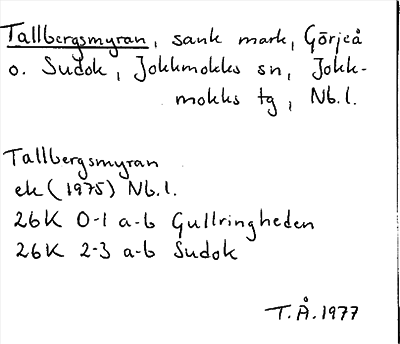 Tallbergsmyran, sank mark, Görjeå
o. Sudok, Jokkmokks sn, Jokk-
mokks tg, Nb.l.
Tallbergsmyran
ek (1975) Nb.l.
26K 0-1 a-b Gullringheden
26K 2-3 a-b Sudok
T.Å.1977